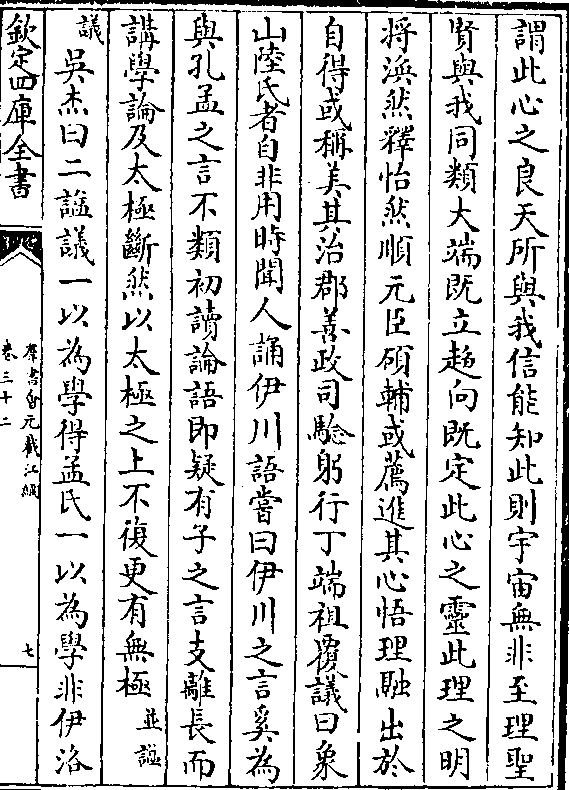 謂此心之良天所與我信能知此則宇宙無非至理聖
賢與我同類大端既立趍向既定此心之靈此理之明
將渙然釋怡然順元臣碩輔或薦進其心悟理融出於
自得或稱美其治郡善政可驗躬行丁端祖覆議曰象
山陸氏者自非用時聞人誦伊川語嘗曰伊川之言奚為
與孔孟之言不類初讀論語即疑有子之言支離長而
講學論及太極斷然以太極之上不復更有無極並謚
議吳杰曰二謚議一以為學得孟氏一以為學非伊洛
欽定四庫全書
羣書會元截江網
卷三十二
七